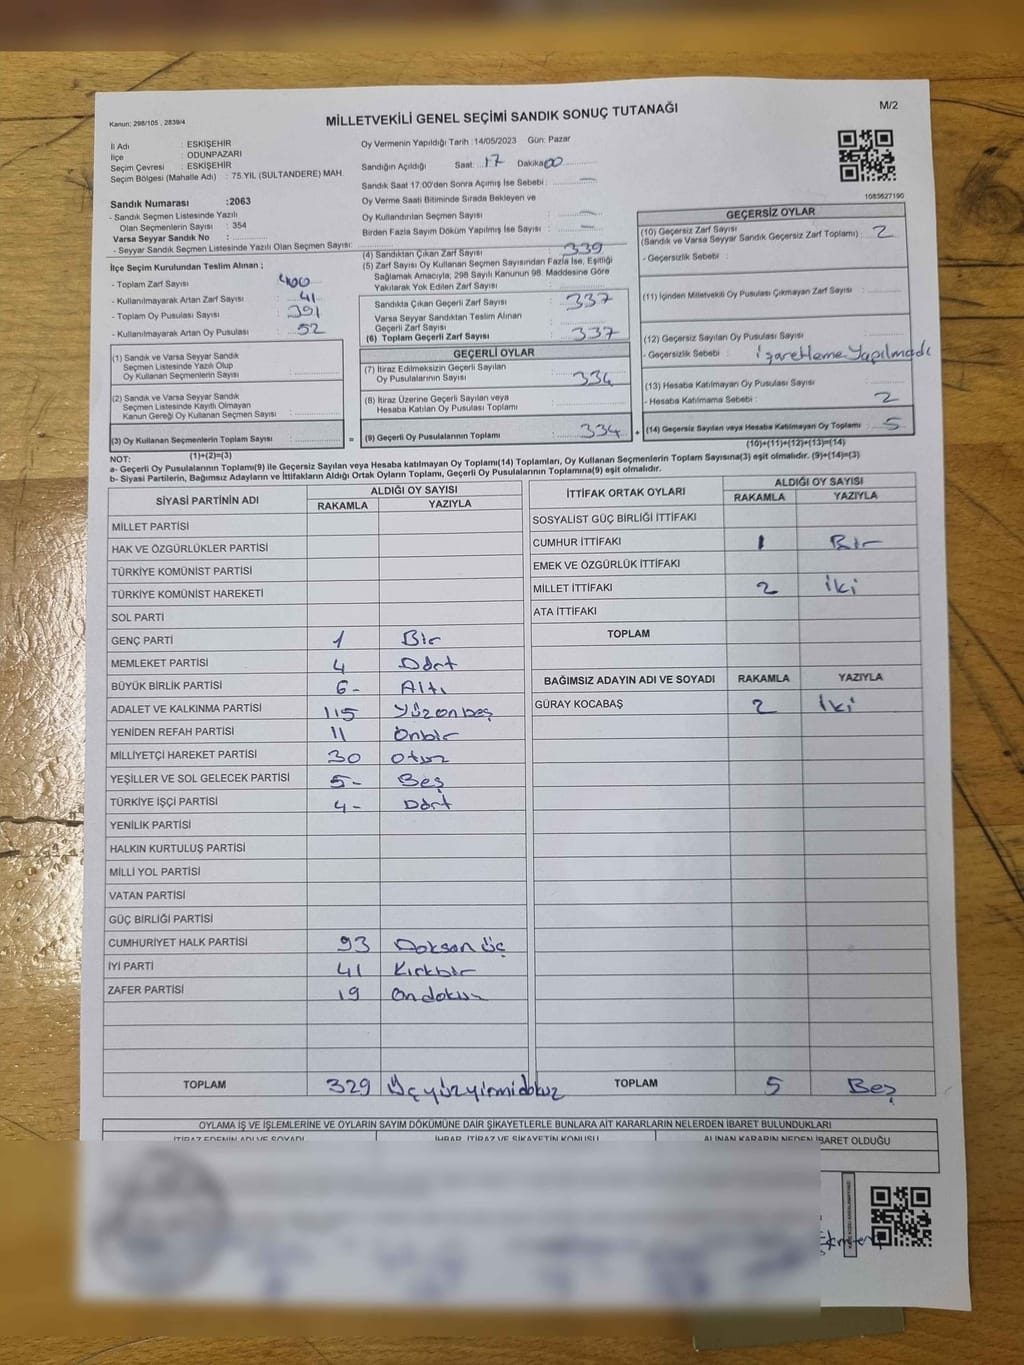 Kanun: 298/105 , 2839/4
MİLLETVEKİLİ GENEL SEÇİMİ SANDIK SONUÇ TUTANAĞI
M/2
İl Adı : ESKİŞEHİR
İlçe : ODUNPAZARI
Seçim Çevresi : ESKİŞEHİR
Seçim Bölgesi (Mahalle Adı) : 75.YIL (SULTANDERE) MAH.
Sandık Numarası :2063
- Sandık Seçmen Listesinde Yazılı
Olan Seçmenlerin Sayısı : 354
Varsa Seyyar Sandık No :
- Seyyar Sandık Seçmen Listesinde Yazılı Olan Seçmen Sayısı:
İlçe Seçim Kurulundan Teslim Alınan ;
- Toplam Zarf Sayısı : 400
- Kullanılmayarak Artan Zarf Sayısı : 41
- Toplam Oy Pusulası Sayısı : 391
- Kullanılmayarak Artan Oy Pusulası : 52
(1) Sandık ve Varsa Seyyar Sandık
Seçmen Listesinde Yazılı Olup
Oy Kullanan Seçmenlerin Sayısı :
(2) Sandık ve Varsa Seyyar Sandık
Seçmen Listesinde Kayıtlı Olmayan
Kanun Gereği Oy Kullanan Seçmen Sayısı :
(3) Oy Kullanan Seçmenlerin Toplam Sayısı :
(1)+(2)=(3)
Oy Vermenin Yapıldığı Tarih :14/05/2023 Gün: Pazar
Sandığın Açıldığı Saat: 17 Dakika 00
Sandık Saat 17:00'den Sonra Açılmış İse Sebebi : —
Oy Verme Saati Bitiminde Sırada Bekleyen ve
Oy Kullandırılan Seçmen Sayısı : —
Birden Fazla Sayım Döküm Yapılmış İse Sayısı : —
(4) Sandıktan Çıkan Zarf Sayısı : 339
(5) Zarf Sayısı Oy Kullanan Seçmen Sayısından Fazla İse, Eşitliği
Sağlamak Amacıyla; 298 Sayılı Kanunun 98. Maddesine Göre
Yakılarak Yok Edilen Zarf Sayısı :
Sandıkta Çıkan Geçerli Zarf Sayısı : 337
Varsa Seyyar Sandıktan Teslim Alınan
Geçerli Zarf Sayısı :
(6) Toplam Geçerli Zarf Sayısı : 337
GEÇERLİ OYLAR
(7) İtiraz Edilmeksizin Geçerli Sayılan
Oy Pusulasının Sayısı : 334
(8) İtiraz Üzerine Geçerli Sayılan veya
Hesaba Katılan Oy Pusulası Toplamı :
= (9) Geçerli Oy Pusulalarının Toplamı : 334 +
1083627190
GEÇERSİZ OYLAR
(10) Geçersiz Zarf Sayısı
(Sandık ve Varsa Seyyar Sandık Geçersiz Zarf Toplamı) : 2
- Geçersizlik Sebebi :
(11) İçinden Milletvekili Oy Pusulası Çıkmayan Zarf Sayısı :
(12) Geçersiz Sayılan Oy Pusulası Sayısı
- Geçersizlik Sebebi : İşaretleme Yapılmadı
(13) Hesaba Katılmayan Oy Pusulası Sayısı
- Hesaba Katılmama Sebebi : 2
(14) Geçersiz Sayılan veya Hesaba Katılmayan Oy Toplamı : 5
(10)+(11)+(12)+(13)=(14)
NOT:
a- Geçerli Oy Pusulalarının Toplamı(9) ile Geçersiz Sayılan veya Hesaba katılmayan Oy Toplamı(14) Toplamları, Oy Kullanan Seçmenlerin Toplam Sayısına(3) eşit olmalıdır. (9)+(14)=(3)
b- Siyasi Partilerin, Bağımsız Adayların ve İttifakların Aldığı Ortak Oyların Toplamı, Geçerli Oy Pusulalarının Toplamına(9) eşit olmalıdır.
SİYASİ PARTİNİN ADI ALDIĞI OY SAYISI
RAKAMLA YAZIYLA
MİLLET PARTİSİ
HAK VE ÖZGÜRLÜKLER PARTİSİ
TÜRKİYE KOMÜNİST PARTİSİ
TÜRKİYE KOMÜNİST HAREKETİ
SOL PARTİ
GENÇ PARTİ 1 Bir
MEMLEKET PARTİSİ 4 Dört
BÜYÜK BİRLİK PARTİSİ 6- Altı
ADALET VE KALKINMA PARTİSİ 115 Yüzonbeş
YENİDEN REFAH PARTİSİ 11 Onbir
MİLLİYETÇİ HAREKET PARTİSİ 30 Otuz
YEŞİLLER VE SOL GELECEK PARTİSİ 5- Beş
TÜRKİYE İŞÇİ PARTİSİ 4- Dört
YENİLİK PARTİSİ
HALKIN KURTULUŞ PARTİSİ
MİLLİ YOL PARTİSİ
VATAN PARTİSİ
GÜÇ BİRLİĞİ PARTİSİ
CUMHURİYET HALK PARTİSİ 93 Doksan üç
İYİ PARTİ 41 Kırkbir
ZAFER PARTİSİ 19 Ondokuz
TOPLAM 329 Üçyüzyirmidokuz
İTTİFAK ORTAK OYLARI ALDIĞI OY SAYISI
RAKAMLA YAZIYLA
SOSYALİST GÜÇ BİRLİĞİ İTTİFAKI
CUMHUR İTTİFAKI 1 Bir
EMEK VE ÖZGÜRLÜK İTTİFAKI
MİLLET İTTİFAKI 2 İki
ATA İTTİFAKI
TOPLAM
BAĞIMSIZ ADAYIN ADI VE SOYADI RAKAMLA YAZIYLA
GÜRAY KOCABAŞ 2 İki
TOPLAM 5 Beş
OYLAMA İŞ VE İŞLEMLERİNE VE OYLARIN SAYIM DÖKÜMÜNE DAİR ŞİKAYETLERLE BUNLARA AİT KARARLARIN NELERDEN İBARET BULUNDUKLARI
İTİRAZ EDENİN ADI VE SOYADI İHBAR, İTİRAZ VE ŞİKAYETİN KONUSU ALINAN KARARIN NEDEN İBARET OLDUĞU